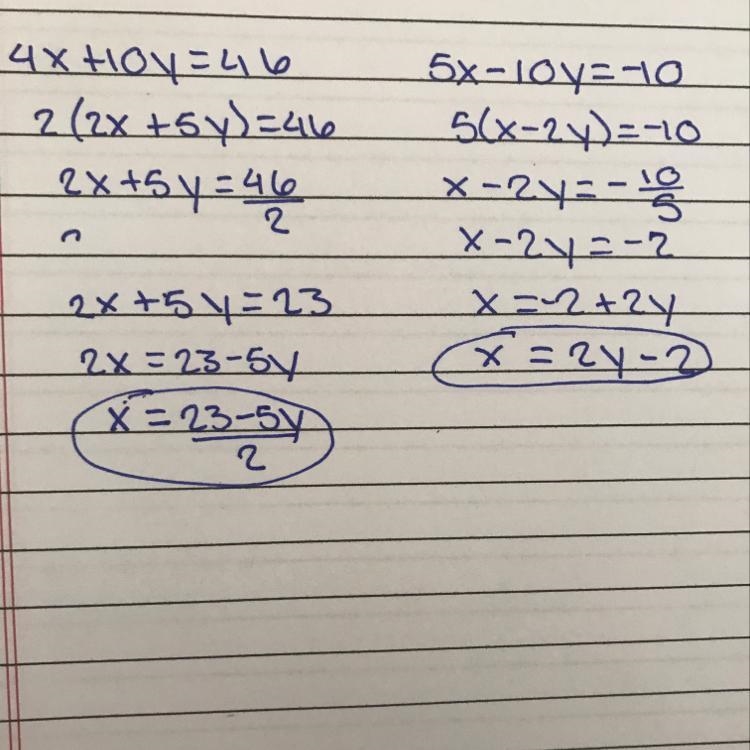 4x+10y=46
2(2x+5y)=46
2x+5y=46/2
2x+5y=23
2x=23-5y
x=23-5y/2
5x-10y=-10
5(x-2y)=-10
x-2y=-10/5
x-2y=-2
x=-2+2y
x=2y-2